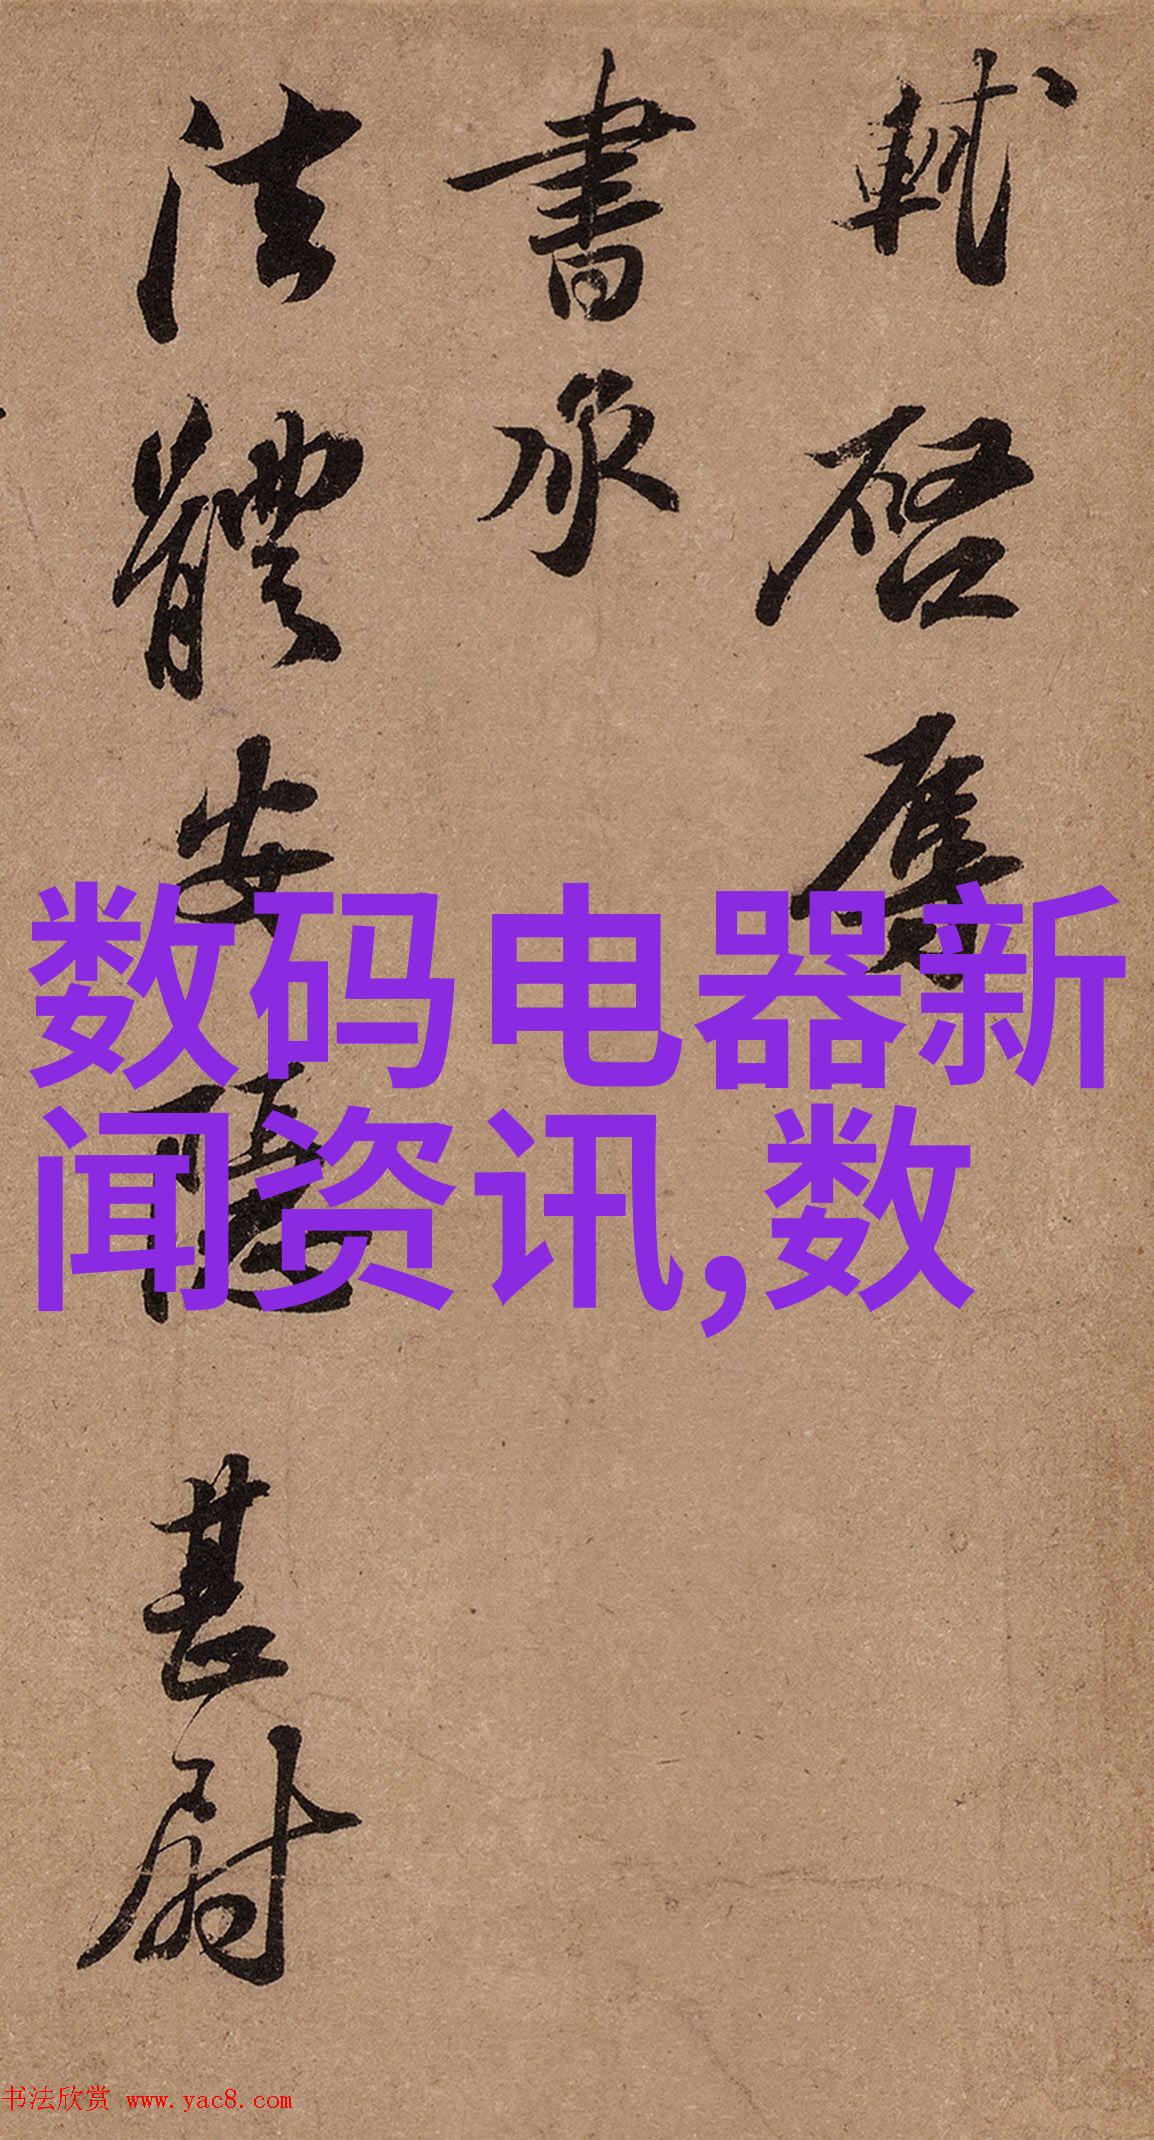 軾啓辱
書承
法體安隱甚尉
数码电器新
闻资讯,数
书法欣赏 www.yac8.com